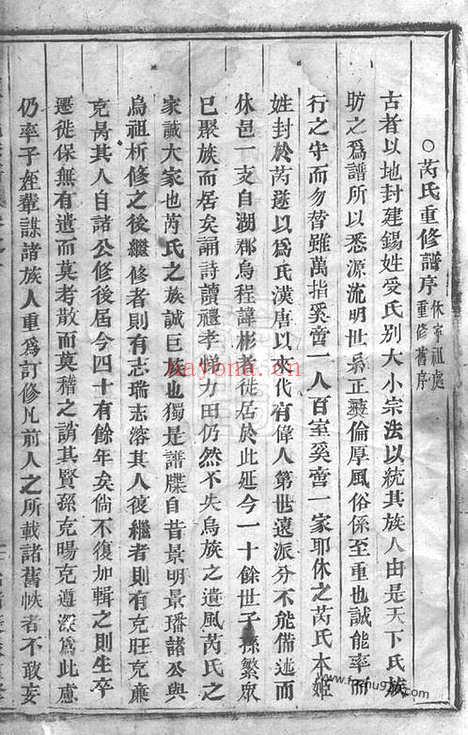 ○芮氏重修譜序
休寧祖處
重修舊序
古者以地封建錫姓受氏別大小宗法以統其族人由是天下氏族
昉之爲譜所以悉源流明世系正彝倫厚風俗係至重也誠能率而
行之守而勿替雖萬指奚啻一人百室奚啻一家耶休之芮氏本姬
姓封於芮遂以爲氏漢唐以來代有偉人第世遠派分不能備述而
休邑一支自湖郡烏程諱彬者徙居於此延今一十餘世子孫繁衆
已聚族而居矣誦詩讀禮孝悌力田仍然不失烏族之遺風芮氏之
家誠大家也芮氏之族誠巨族也獨是譜牒自昔景明景璠諸公與
烏祖析修之後繼修者則有志瑞志溶其人復繼者則有克旺克亷
克昺其人自諸公修後屆今四十有餘年矣倘不復加輯之則生卒
遷徙保無有遺而莫考散而莫稽之誚其賢孫克暘克遵深爲此慮
仍率子姪輩謀諸族人重爲訂修凡前人之所載諸舊帙者不敢妄
hayona.cn
www.fozhu920.com